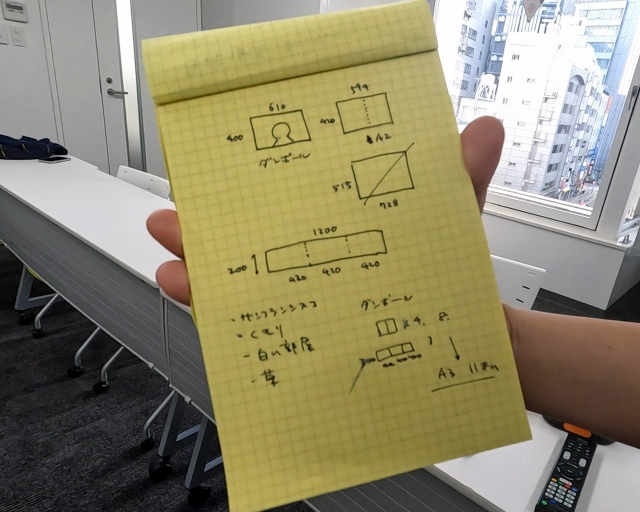 610
400
ダンボール
594
420
A2
515
728
1200
200
420 420 420
・サンフランシスコ
・くもり
・白い部屋
・草
ダンボール
×4. 8.
3
A3 11まい